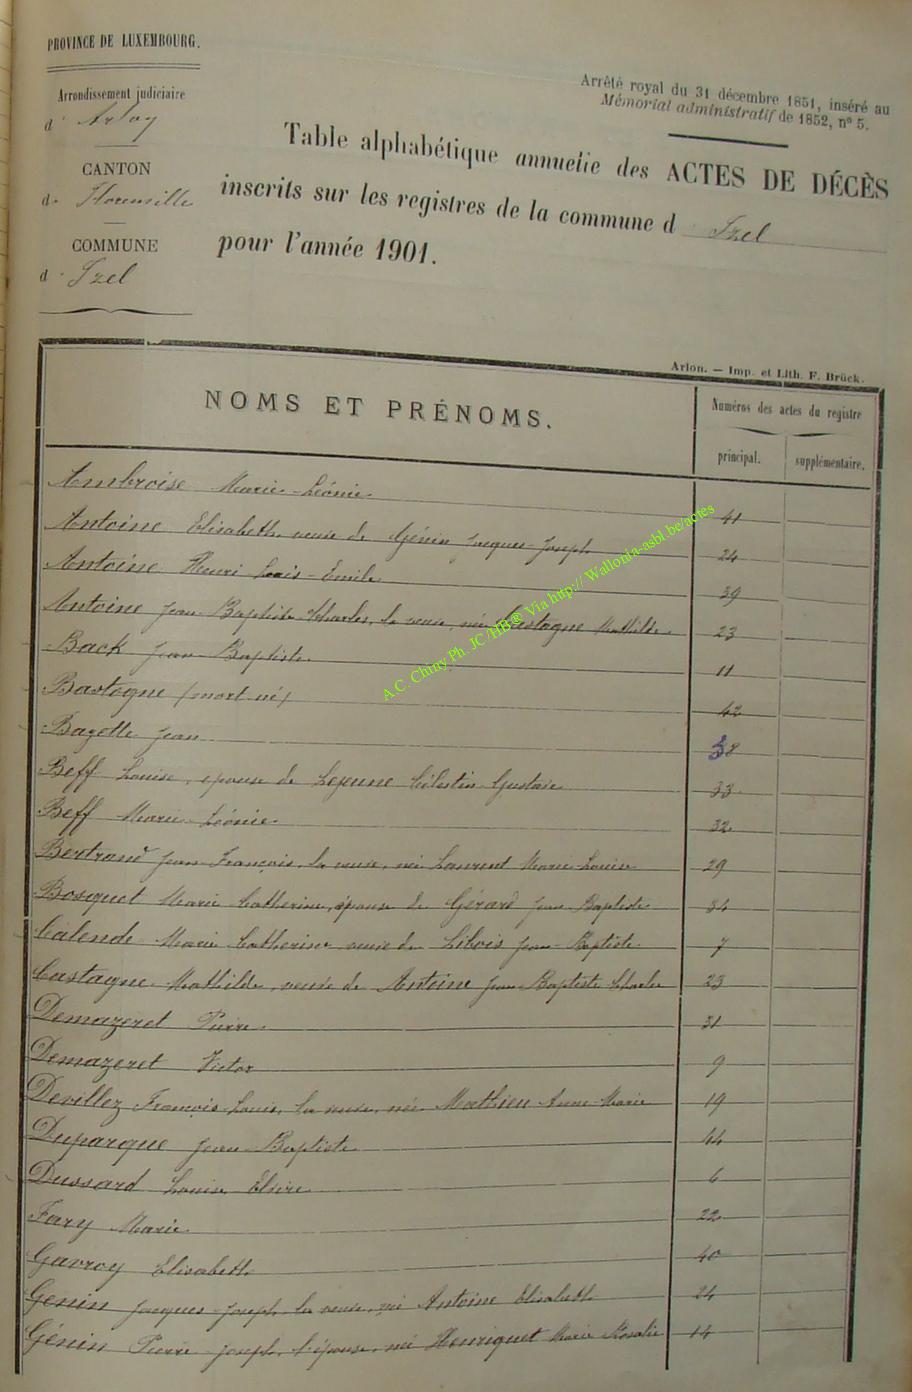 PROVINCE DE LUXEMBOURG.
Arrondissement judiciaire
d' Arlon
CANTON
de Florenville
COMMUNE
d' Izel
Arrêté royal du 31 décembre 1851, inséré au
Mémorial administratif de 1852, nº 5.
Table alphabétique annuelle des ACTES DE DÉCÈS
inscrits sur les registres de la commune d Izel
pour l'année 1901.
Arlon. — Imp. et Lith. F. Brück.
NOMS ET PRÉNOMS.
Numéros des actes du registre
principal. supplémentaire.
Ambroise Marie-Léonie 41
Antoine Elisabeth, veuve de Génin Jacques-Joseph 24
Antoine Henri Louis-Emile 39
Antoine Jean-Baptiste Charles, la veuve, née Castagne Mathilde 23
Back Jean-Baptiste 11
Bastogne (mort-né) 42
Bazelle Jean 38
Beff Louise, épouse de Lejeune Célestin-Gustave 33
Beff Marie-Léonie 32
Bertrand Jean-François, la veuve, née Laurent Marie-Louise 29
Bosquet Marie Catherine, épouse de Gérard Jean-Baptiste 34
Calende Marie Catherine, veuve de Libois Jean-Baptiste 7
Castagne Mathilde, veuve de Antoine Jean-Baptiste Charles 23
Demazeret Pierre 31
Demazeret Victor 9
Devillez François-Louis, la veuve, née Mathieu Anne-Marie 19
Duparque Jean-Baptiste 44
Dussard Louise 6
Fary Marie 22
Gavroy Elisabeth 40
Génin Jacques-Joseph, la veuve, née Antoine Elisabeth 24
Génin Pierre-Joseph, l'épouse, née Henriquet Marie Rosalie 14
A.C. Chiny Ph. JC/HB@ Via http:// Wallonia-asbl.be/actes